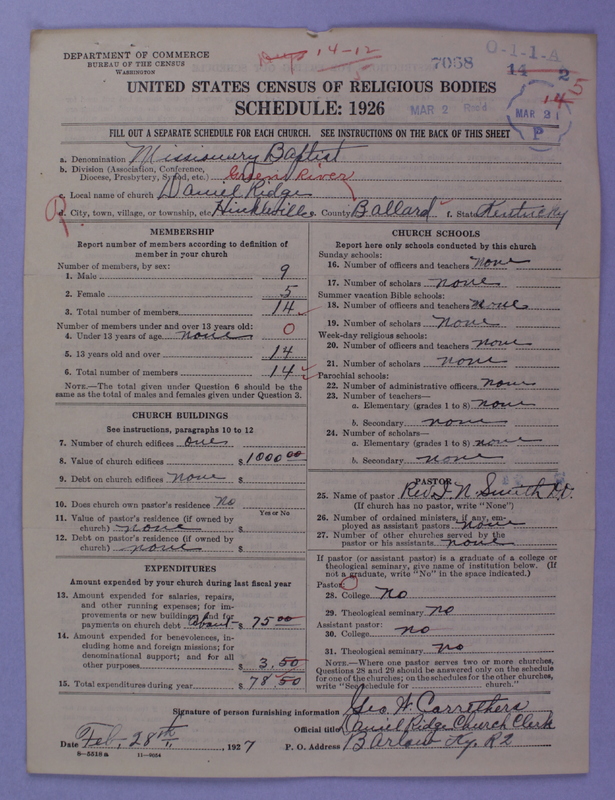 DEPARTMENT OF COMMERCE
BUREAU OF THE CENSUS
WASHINGTON
14-12
7068
O-1-1-A
14 2
14 5
MAR 2 Rec'd
MAR 21
P
UNITED STATES CENSUS OF RELIGIOUS BODIES
SCHEDULE: 1926
FILL OUT A SEPARATE SCHEDULE FOR EACH CHURCH. SEE INSTRUCTIONS ON THE BACK OF THIS SHEET
a. Denomination Missionary Baptist
b. Division (Association, Conference, Diocese, Presbytery, Synod, etc.) Greens River
c. Local name of church Daniel Ridge
d. City, town, village, or township, etc. Hinkleville e. County Ballard f. State Kentucky
MEMBERSHIP
Report number of members according to definition of member in your church
Number of members, by sex:
1. Male 9
2. Female 5
3. Total number of members 14
Number of members under and over 13 years old:
4. Under 13 years of age none 0
5. 13 years old and over 14
6. Total number of members 14
NOTE.—The total given under Question 6 should be the same as the total of males and females given under Question 3.
CHURCH BUILDINGS
See instructions, paragraphs 10 to 12
7. Number of church edifices one
8. Value of church edifices $1000 00
9. Debt on church edifices none $
10. Does church own pastor's residence? no
Yes or No
11. Value of pastor's residence (if owned by church) none $
12. Debt on pastor's residence (if owned by church) none $
EXPENDITURES
Amount expended by your church during last fiscal year
13. Amount expended for salaries, repairs, and other running expenses; for improvements or new building; and for payments on church debt about $ 75 00
14. Amount expended for benevolences, including home and foreign missions; for denominational support; and for all other purposes $ 3.50
15. Total expenditures during year $ 78.50
CHURCH SCHOOLS
Report here only schools conducted by this church
Sunday schools:
16. Number of officers and teachers none
17. Number of scholars none
Summer vacation Bible schools:
18. Number of officers and teachers none
19. Number of scholars none
Week-day religious schools:
20. Number of officers and teachers none
21. Number of scholars none
Parochial schools:
22. Number of administrative officers none
23. Number of teachers—
a. Elementary (grades 1 to 8) none
b. Secondary none
24. Number of scholars—
a. Elementary (grades 1 to 8) none
b. Secondary none
PASTOR
25. Name of pastor Rev. I. N. Smith
(If church has no pastor, write "None")
26. Number of ordained ministers, if any, employed as assistant pastors none
27. Number of other churches served by the pastor or his assistants none
If pastor (or assistant pastor) is a graduate of a college or theological seminary, give name of institution below. (If not a graduate, write "No" in the space indicated.)
Pastor:
28. College no
29. Theological seminary no
Assistant pastor:
30. College no
31. Theological seminary no
NOTE.—Where one pastor serves two or more churches, Questions 28 and 29 should be answered only on the schedule for one of the churches; on the schedules for the other churches, write "See schedule for church."
Signature of person furnishing information Geo. W. Carrethers
Official title Daniel Ridge Church Clerk
Date Feb. 28th, 1927 P. O. Address Barlow Ky. R2
8-5518a 11-9054